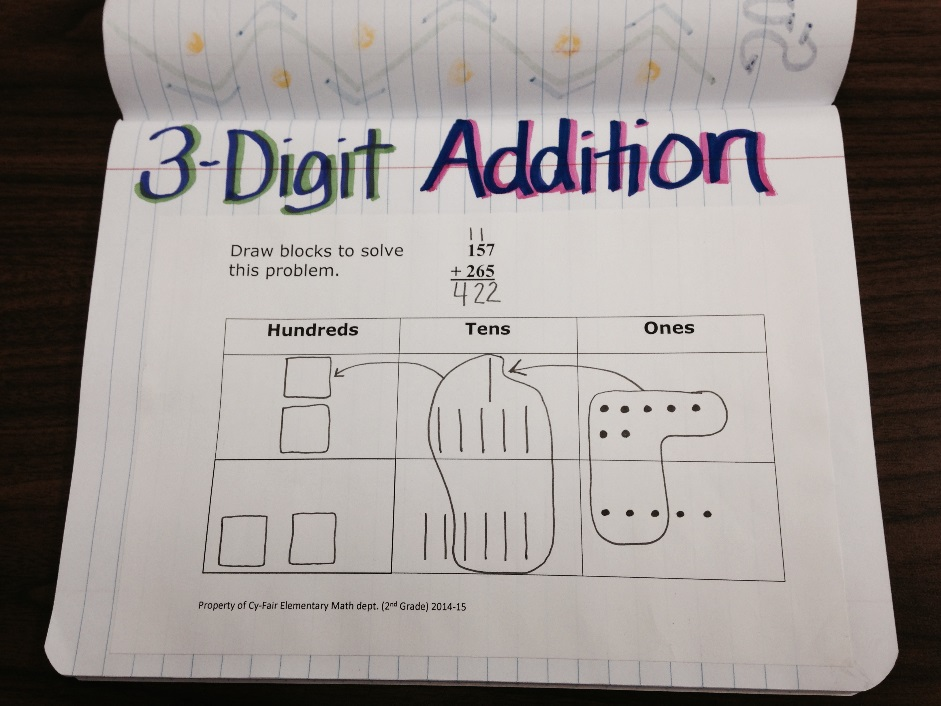 3-Digit Addition
Draw blocks to solve
this problem.
11
157
+ 265
422
Hundreds Tens Ones
Property of Cy-Fair Elementary Math dept. (2nd Grade) 2014-15